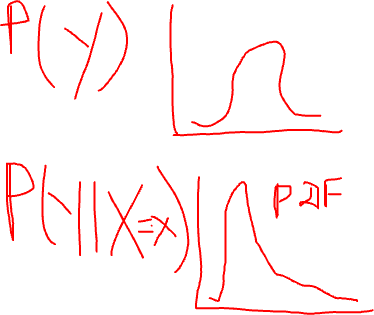 P(Y)
P(Y||X=x) PDF